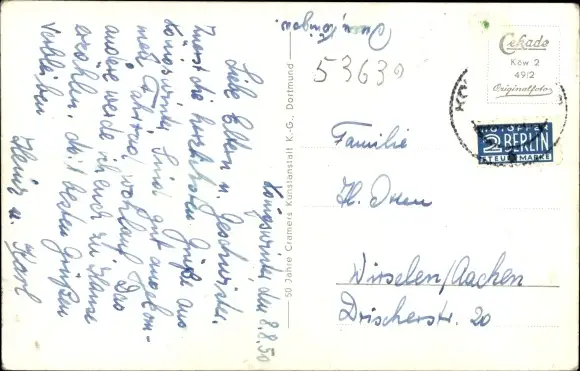 Königswinter, den 8.8.50
Liebe Eltern u. Geschwister.
Zuerst die herzlichsten Grüße aus
Königswinter. Sind gut angekom-
men. Fahrrad wohlauf. Das
andere werde ich euch zu Hause
erzählen. Mit besten Grüßen
verbleiben
Heinz u. Karl
50 Jahre Cramers Kunstanstalt K.-G., Dortmund
53639
Cekade
Köw 2
49/2
Originalfoto
NOTOPFER
2 BERLIN
STEUERMARKE
Familie
H.
Würselen/Aachen
Drischerstr. 20